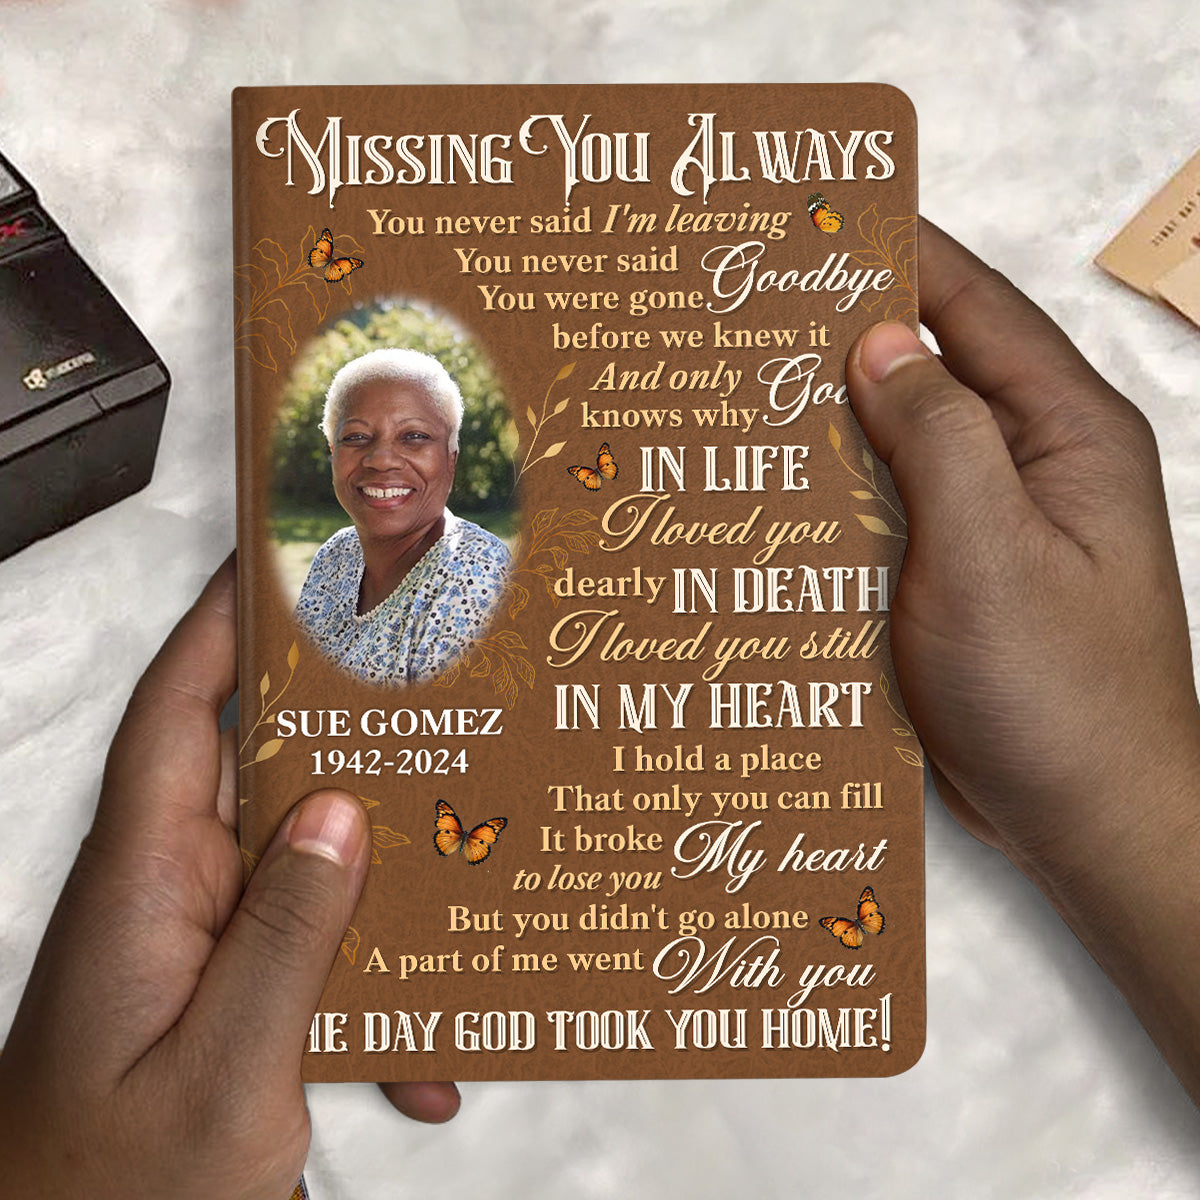 MISSING YOU ALWAYS
You never said I'm leaving
You never said Goodbye
You were gone
before we knew it
And only God
knows why
IN LIFE
I loved you
dearly IN DEATH
I loved you still
IN MY HEART
I hold a place
That only you can fill
It broke My heart
to lose you
But you didn't go alone
A part of me went With you
THE DAY GOD TOOK YOU HOME!
SUE GOMEZ
1942-2024